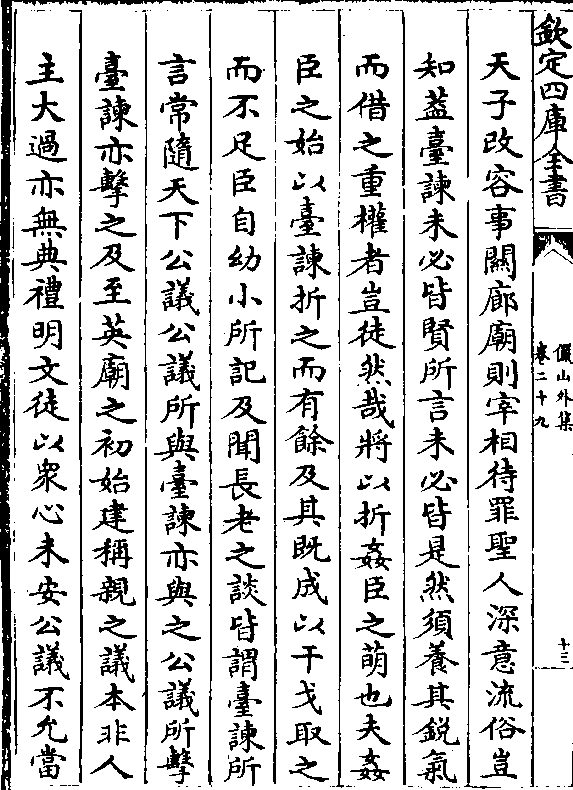 欽定四庫全書
儼山外集
卷二十九
十三
天子改容事關廊廟則宰相待罪聖人深意流俗豈
知葢臺諫未必皆賢所言未必皆是然須養其銳氣
而借之重權者豈徒然哉將以折姦臣之萌也夫姦
臣之始以臺諫折之而有餘及其既成以干戈取之
而不足臣自幼小所記及聞長老之談皆謂臺諫所
言常隨天下公議公議所與臺諫亦與之公議所擊
臺諫亦擊之及至英廟之初始建稱親之議本非人
主大過亦無典禮明文徒以衆心未安公議不允當